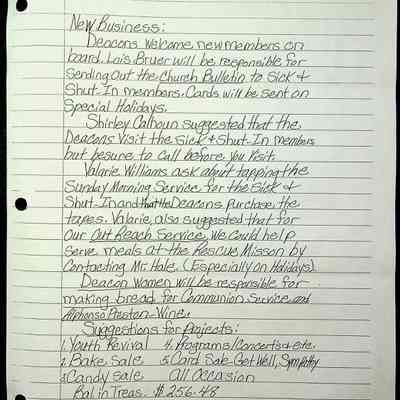 New Business:
Deacons Welcome new members on
board. Lois Bruer will be responsible for
Sending Out the Church Bulletin to Sick &
Shut-In members. Cards will be sent on
Special Holidays.
Shirley Calhoun suggested that the
Deacons Visit the sick & Shut-In members
but be sure to call before you Visit.
Valarie Williams ask about tapping the
Sunday Morning Service for the sick &
Shut-In and that the Deacons purchase the
tapes. Valarie, also suggested that for
Our Out Reach Service, We Could help
serve meals at the Rescue Misson by
Contacting Mr. Hale. (Especially on Holidays)
Deacon Women will be responsible for
making bread for Communion Service and
Alphonso Preston-Wine.
Suggestions for Projects:
1. Youth Revival 4. Programs/Concerts & etc.
2. Bake Sale 5. Card Sale-Get Well, Sympathy
3. Candy Sale All Occasion
Bal in Treas. $256.48